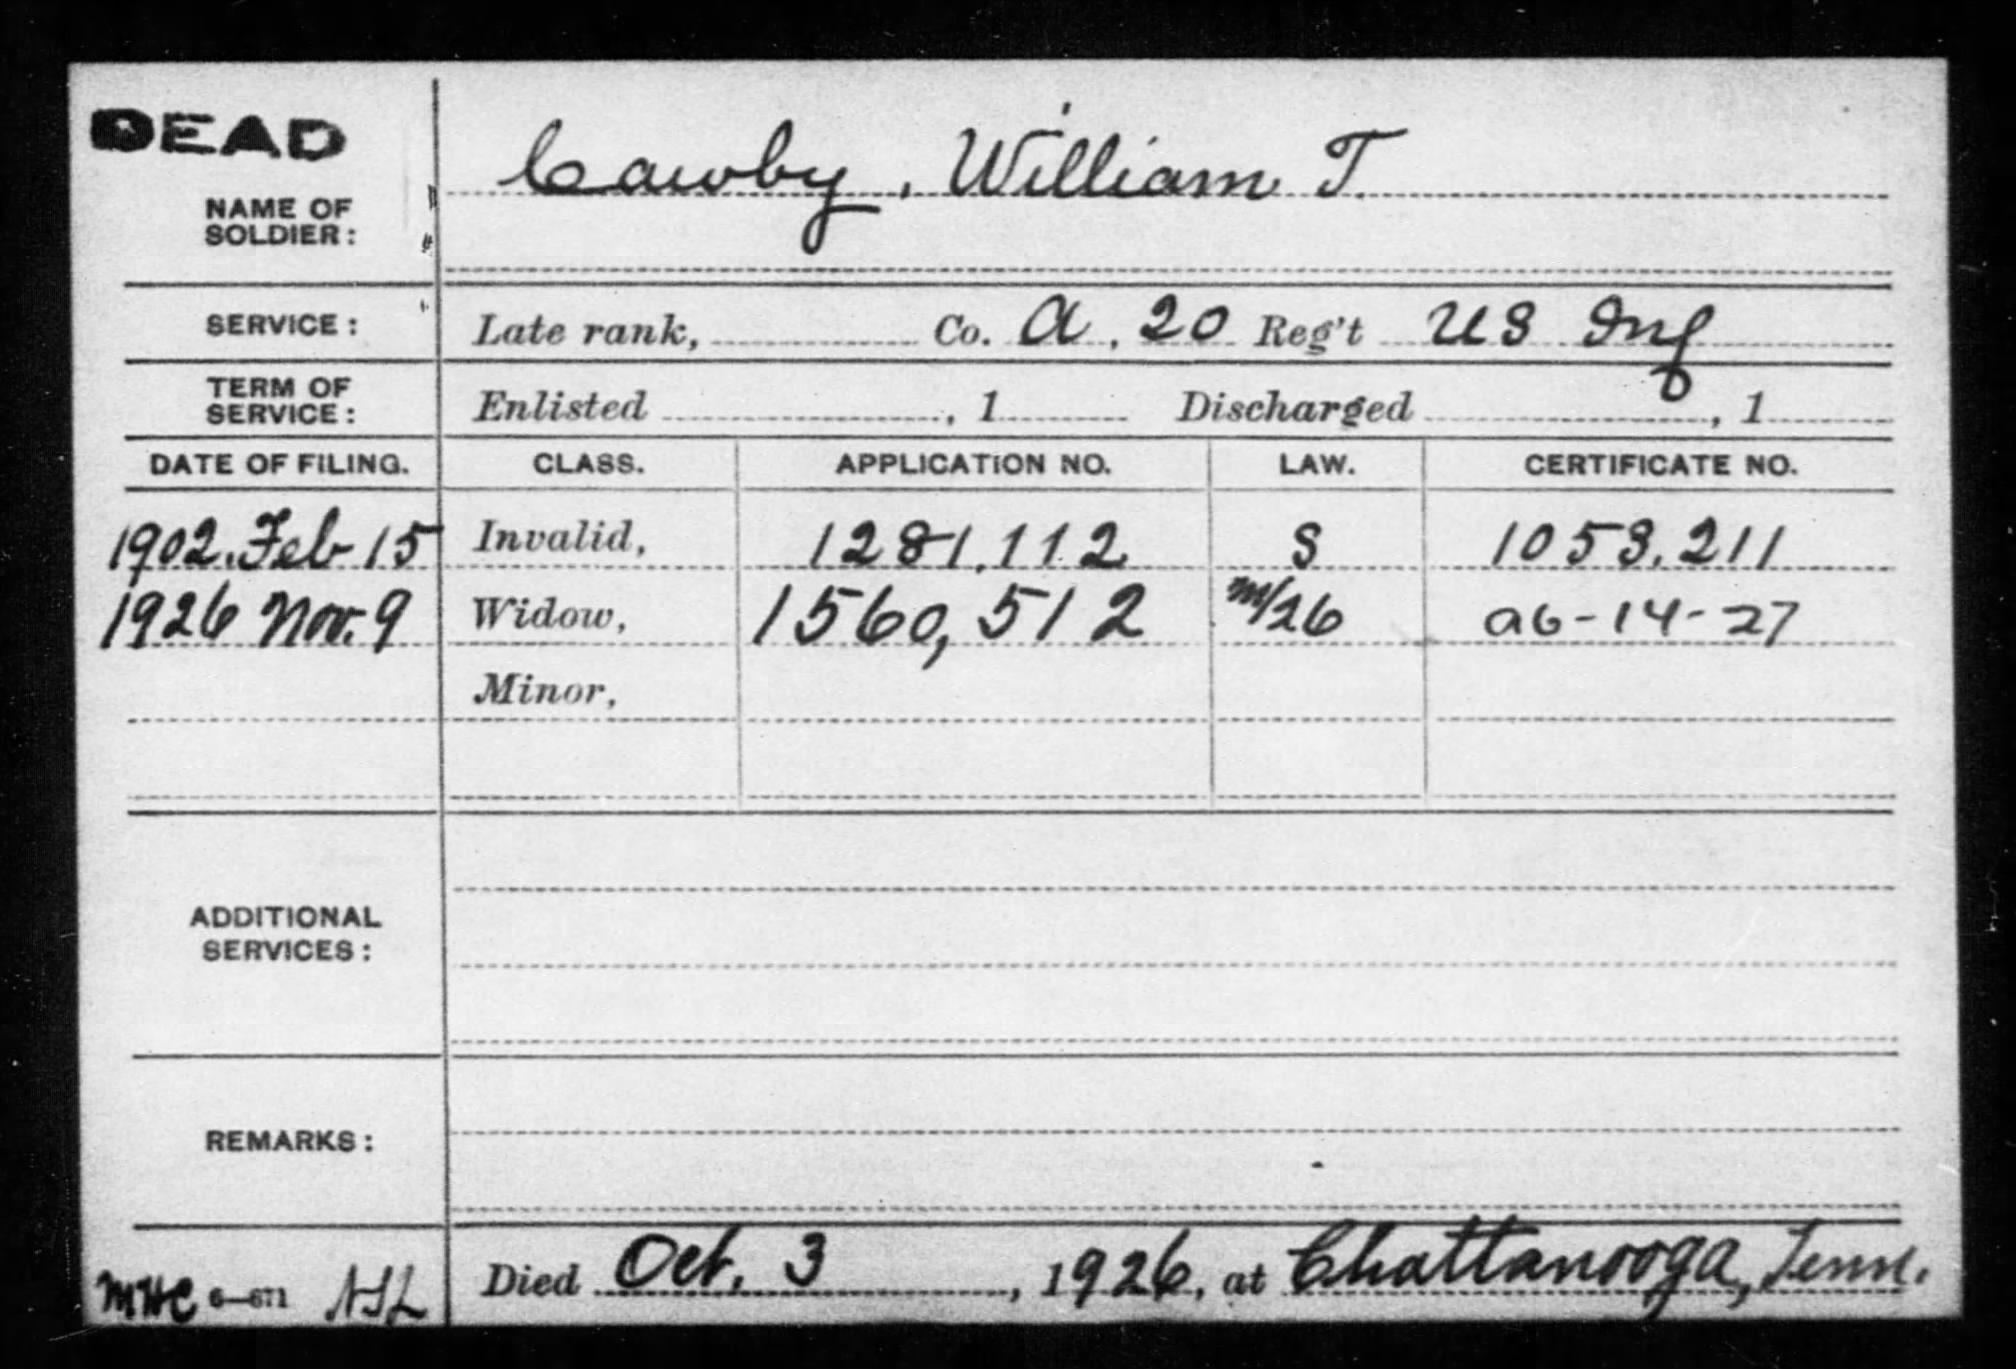 DEAD
NAME OF
SOLDIER:
Cawby, William T.
SERVICE: Late rank, Co. A, 20 Reg't US Inf
TERM OF
SERVICE: Enlisted , 1 Discharged , 1
DATE OF FILING. CLASS. APPLICATION NO. LAW. CERTIFICATE NO.
1902. Feb 15 Invalid, 1281.112 S 1053.211
1926 Nov. 9 Widow, 1560,512 m/26 a6-14-27
Minor,
ADDITIONAL
SERVICES:
REMARKS:
MHC 6-671 Died Oct. 3, 1926, at Chattanooga, Tenn.